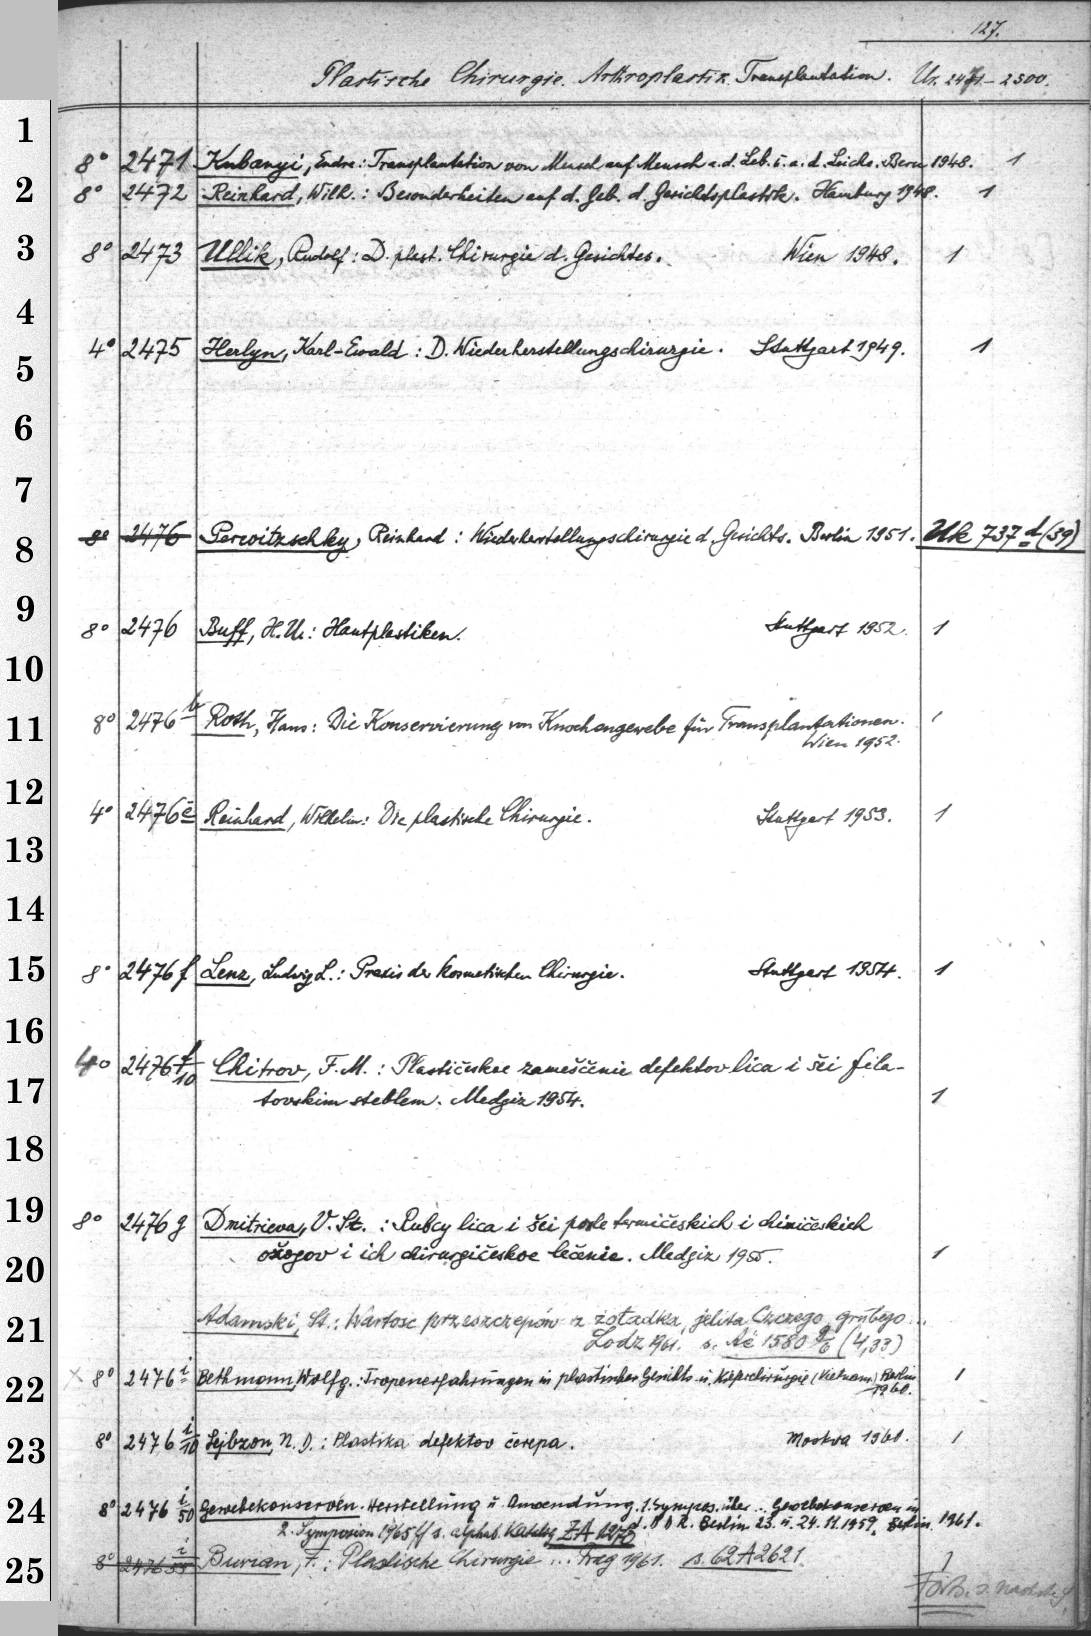 127.
Plastische Chirurgie. Arthroplastik. Transplantation. Uk. 2471 – 2500.
1
8° 2471 Kubanyi, Endre: Transplantation von Mensch auf Mensch a. d. Leb. u. a. d. Leiche. Bern 1948. 1
2 8° 2472 Reinhard, Wilh.: Besonderheiten auf d. Geb. d. Gesichtsplastik. Hamburg 1948. 1
3 8° 2473 Ullik, Rudolf: D. plast. Chirurgie d. Gesichtes. Wien 1948. 1
4
4° 2475 Herlyn, Karl-Ewald: D. Wiederherstellungschirurgie. Stuttgart 1949. 1
5
6
7
8 8° 2476 Perwitzschky, Reinhard: Wiederherstellungschirurgie d. Gesichts. Berlin 1951. Uk 737 d (39)
9
8° 2476 Buff, H. U.: Hautplastiken. Stuttgart 1952. 1
10
11 8° 2476 b Roth, Hans: Die Konservierung von Knochengewebe für Transplantationen. 1
Wien 1952.
12
4° 2476 e Reinhard, Wilhelm: Die plastische Chirurgie. Stuttgart 1953. 1
13
14
15 8° 2476 f Lenz, Ludwig L.: Praxis der kosmetischen Chirurgie. Stuttgart 1954. 1
16
4° 2476 f/10 Chitrov, F. M.: Plastičeskoe zameščenie defektov lica i šei fila-
17 tovskim steblem. Medgiz 1954. 1
18
19 8° 2476 g Dmitrieva, V. St.: Rubcy lica i šei posle termičeskich i chimičeskich
20 ožogov i ich chirurgičeskoe lečenie. Medgiz 1955. 1
21 Adamski, St.: Wartosc przeszczepów z żoładka, jelita Czczego, grubego...
Lodz 1961. s. Aë 1580 g/6 (4,33)
22 x 8° 2476 i Bethmann, Wolfg.: Tropenerfahrungen in plastischer Gesichts- u. Kieferchirurgie (Vietnam) Berlin 1960. 1
23 8° 2476 i/10 Lejbzon, N. D.: Plastika defektov čerepa. Moskva 1961. 1
24 8° 2476 i/50 Gewebekonserven. Herstellung u. Anwendung. 1. Sympos. über... Gewebekonserven in
d. DDR. Berlin 23. u. 24. 11. 1959. Berlin 1961.
2. Symposion 1965 ff s. alphab. Katalog ZA 1270
25 8° 2476 i/55 Burian, F.: Plastische Chirurgie ... Prag 1961. s. 62 A 2621. 1
Forts. s.